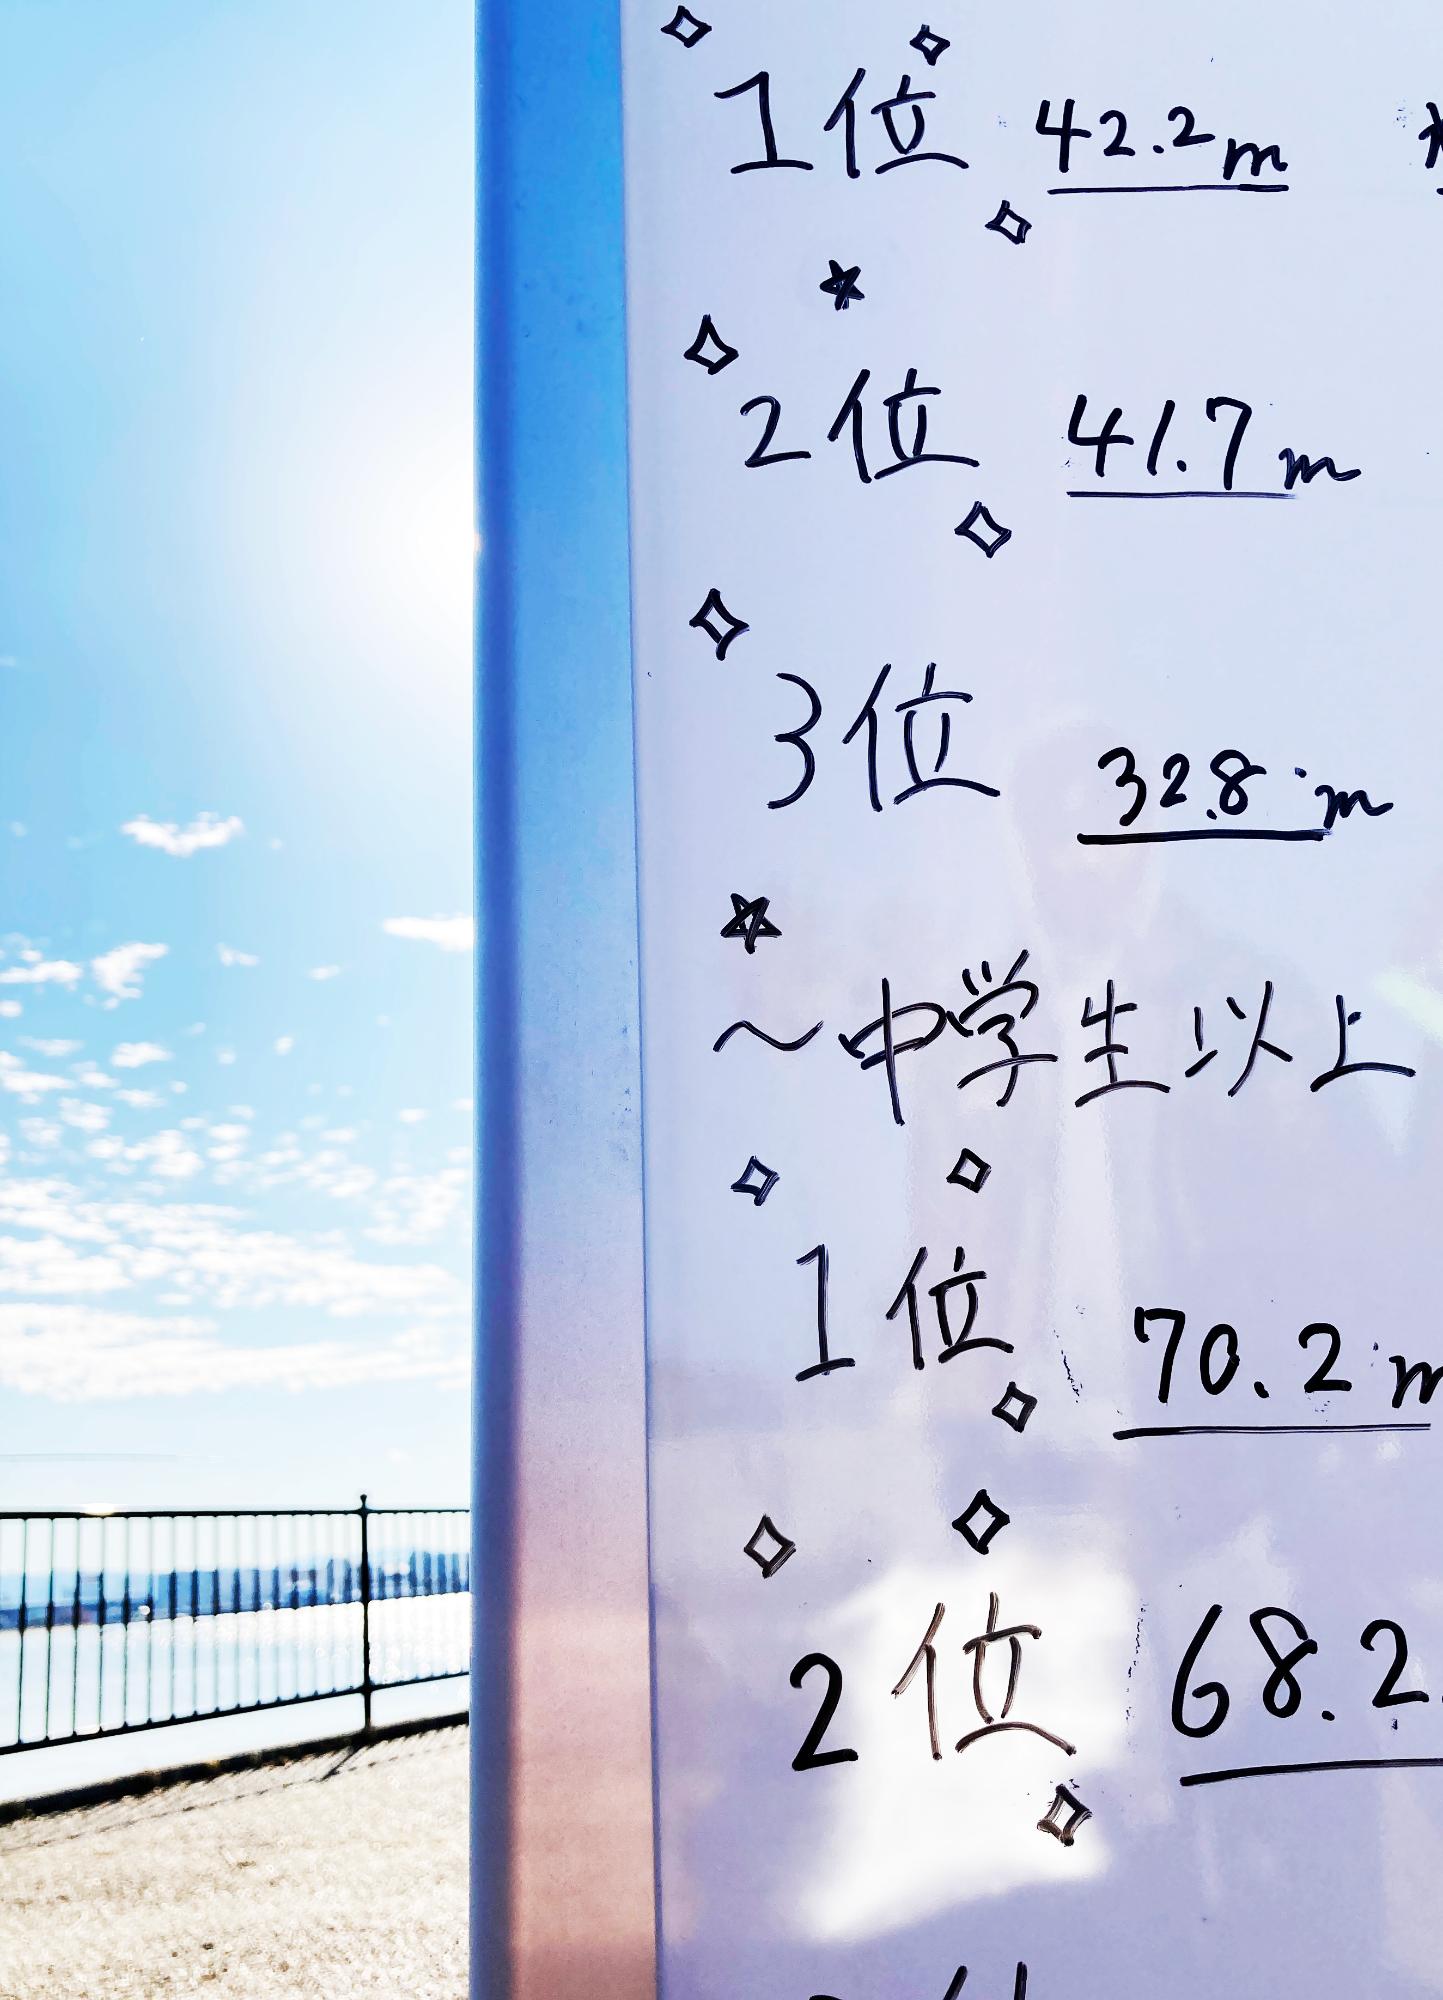 1位 42.2m
2位 41.7m
3位 32.8m
～中学生以上
1位 70.2m
2位 68.2